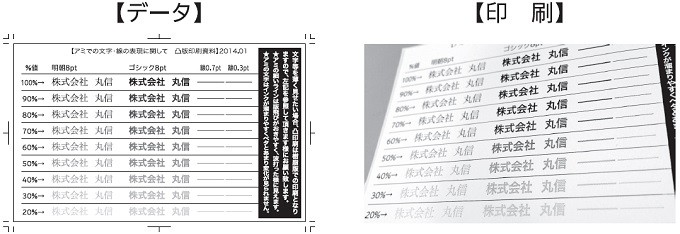 【データ】
【アミでの文字・線の表現に関して　凸版印刷資料】2014.01
%値　明朝8pt　ゴシック8pt　線0.7pt　線0.3pt
100%→　株式会社　丸信　株式会社　丸信
90%→　株式会社　丸信　株式会社　丸信
80%→　株式会社　丸信　株式会社　丸信
70%→　株式会社　丸信　株式会社　丸信
60%→　株式会社　丸信　株式会社　丸信
50%→　株式会社　丸信　株式会社　丸信
40%→　株式会社　丸信　株式会社　丸信
30%→　株式会社　丸信　株式会社　丸信
20%→　株式会社　丸信　株式会社　丸信
文字等を薄く見せたい場合、凸印刷は樹脂版での印刷となり
ますので、左記を参照して頂きます様にお願い致します。
【印　刷】
100%→　株式会社　丸信　株式会社　丸信
90%→　株式会社　丸信　株式会社　丸信
80%→　株式会社　丸信　株式会社　丸信
70%→　株式会社　丸信　株式会社　丸信
60%→　株式会社　丸信　株式会社　丸信
50%→　株式会社　丸信　株式会社　丸信
40%→　株式会社　丸信　株式会社　丸信
30%→　株式会社　丸信　株式会社　丸信
20%→　株式会社　丸信　株式会社　丸信